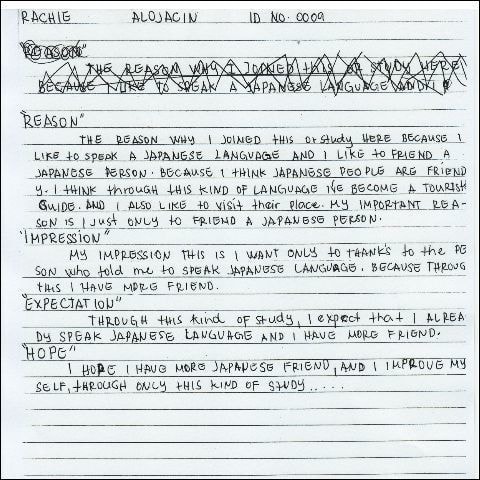 RACHIE ALOJACIN ID NO. 0009
"REASON"
THE REASON WHY I JOINED this or STUDY HERE
BECAUSE I LIKE TO SPEAK A JAPANESE LANGUAGE AND I
"REASON"
THE REASON WHY I JOINED THIS or study HERE BECAUSE I
LIKE to SPEAK A JAPANESE LANGUAGE AND I LIKE to FRIEND A
JAPANESE PERSON. BECAUSE I THINK JAPANESE PEOPLE ARE FRIEND
Y. I THINK through THIS KIND OF LANGUAGE I'VE BECOME A TOURIST
GUIDE. AND I ALSO LIKE to VISIT their PLACE. MY IMPORTANT REA-
SON IS I JUST ONLY to FRIEND A JAPANESE PERSON.
"IMPRESSION"
MY IMPRESSION THIS IS I WANT ONLY to THANKS to the PE
SON who told me to SPEAK JAPANESE LANGUAGE. BECAUSE THROUG
THIS I HAVE MORE FRIEND.
"EXPECTATION"
THROUGH this Kind of study, I expect that I ALREA
DY SPEAK JAPANESE LANGUAGE AND I HAVE MORE FRIEND.
"HOPE"
I HOPE I HAVE MORE JAPANESE FRIEND, AND I IMPROVE MY
SELF, THROUGH ONLY THIS KIND OF STUDY.....